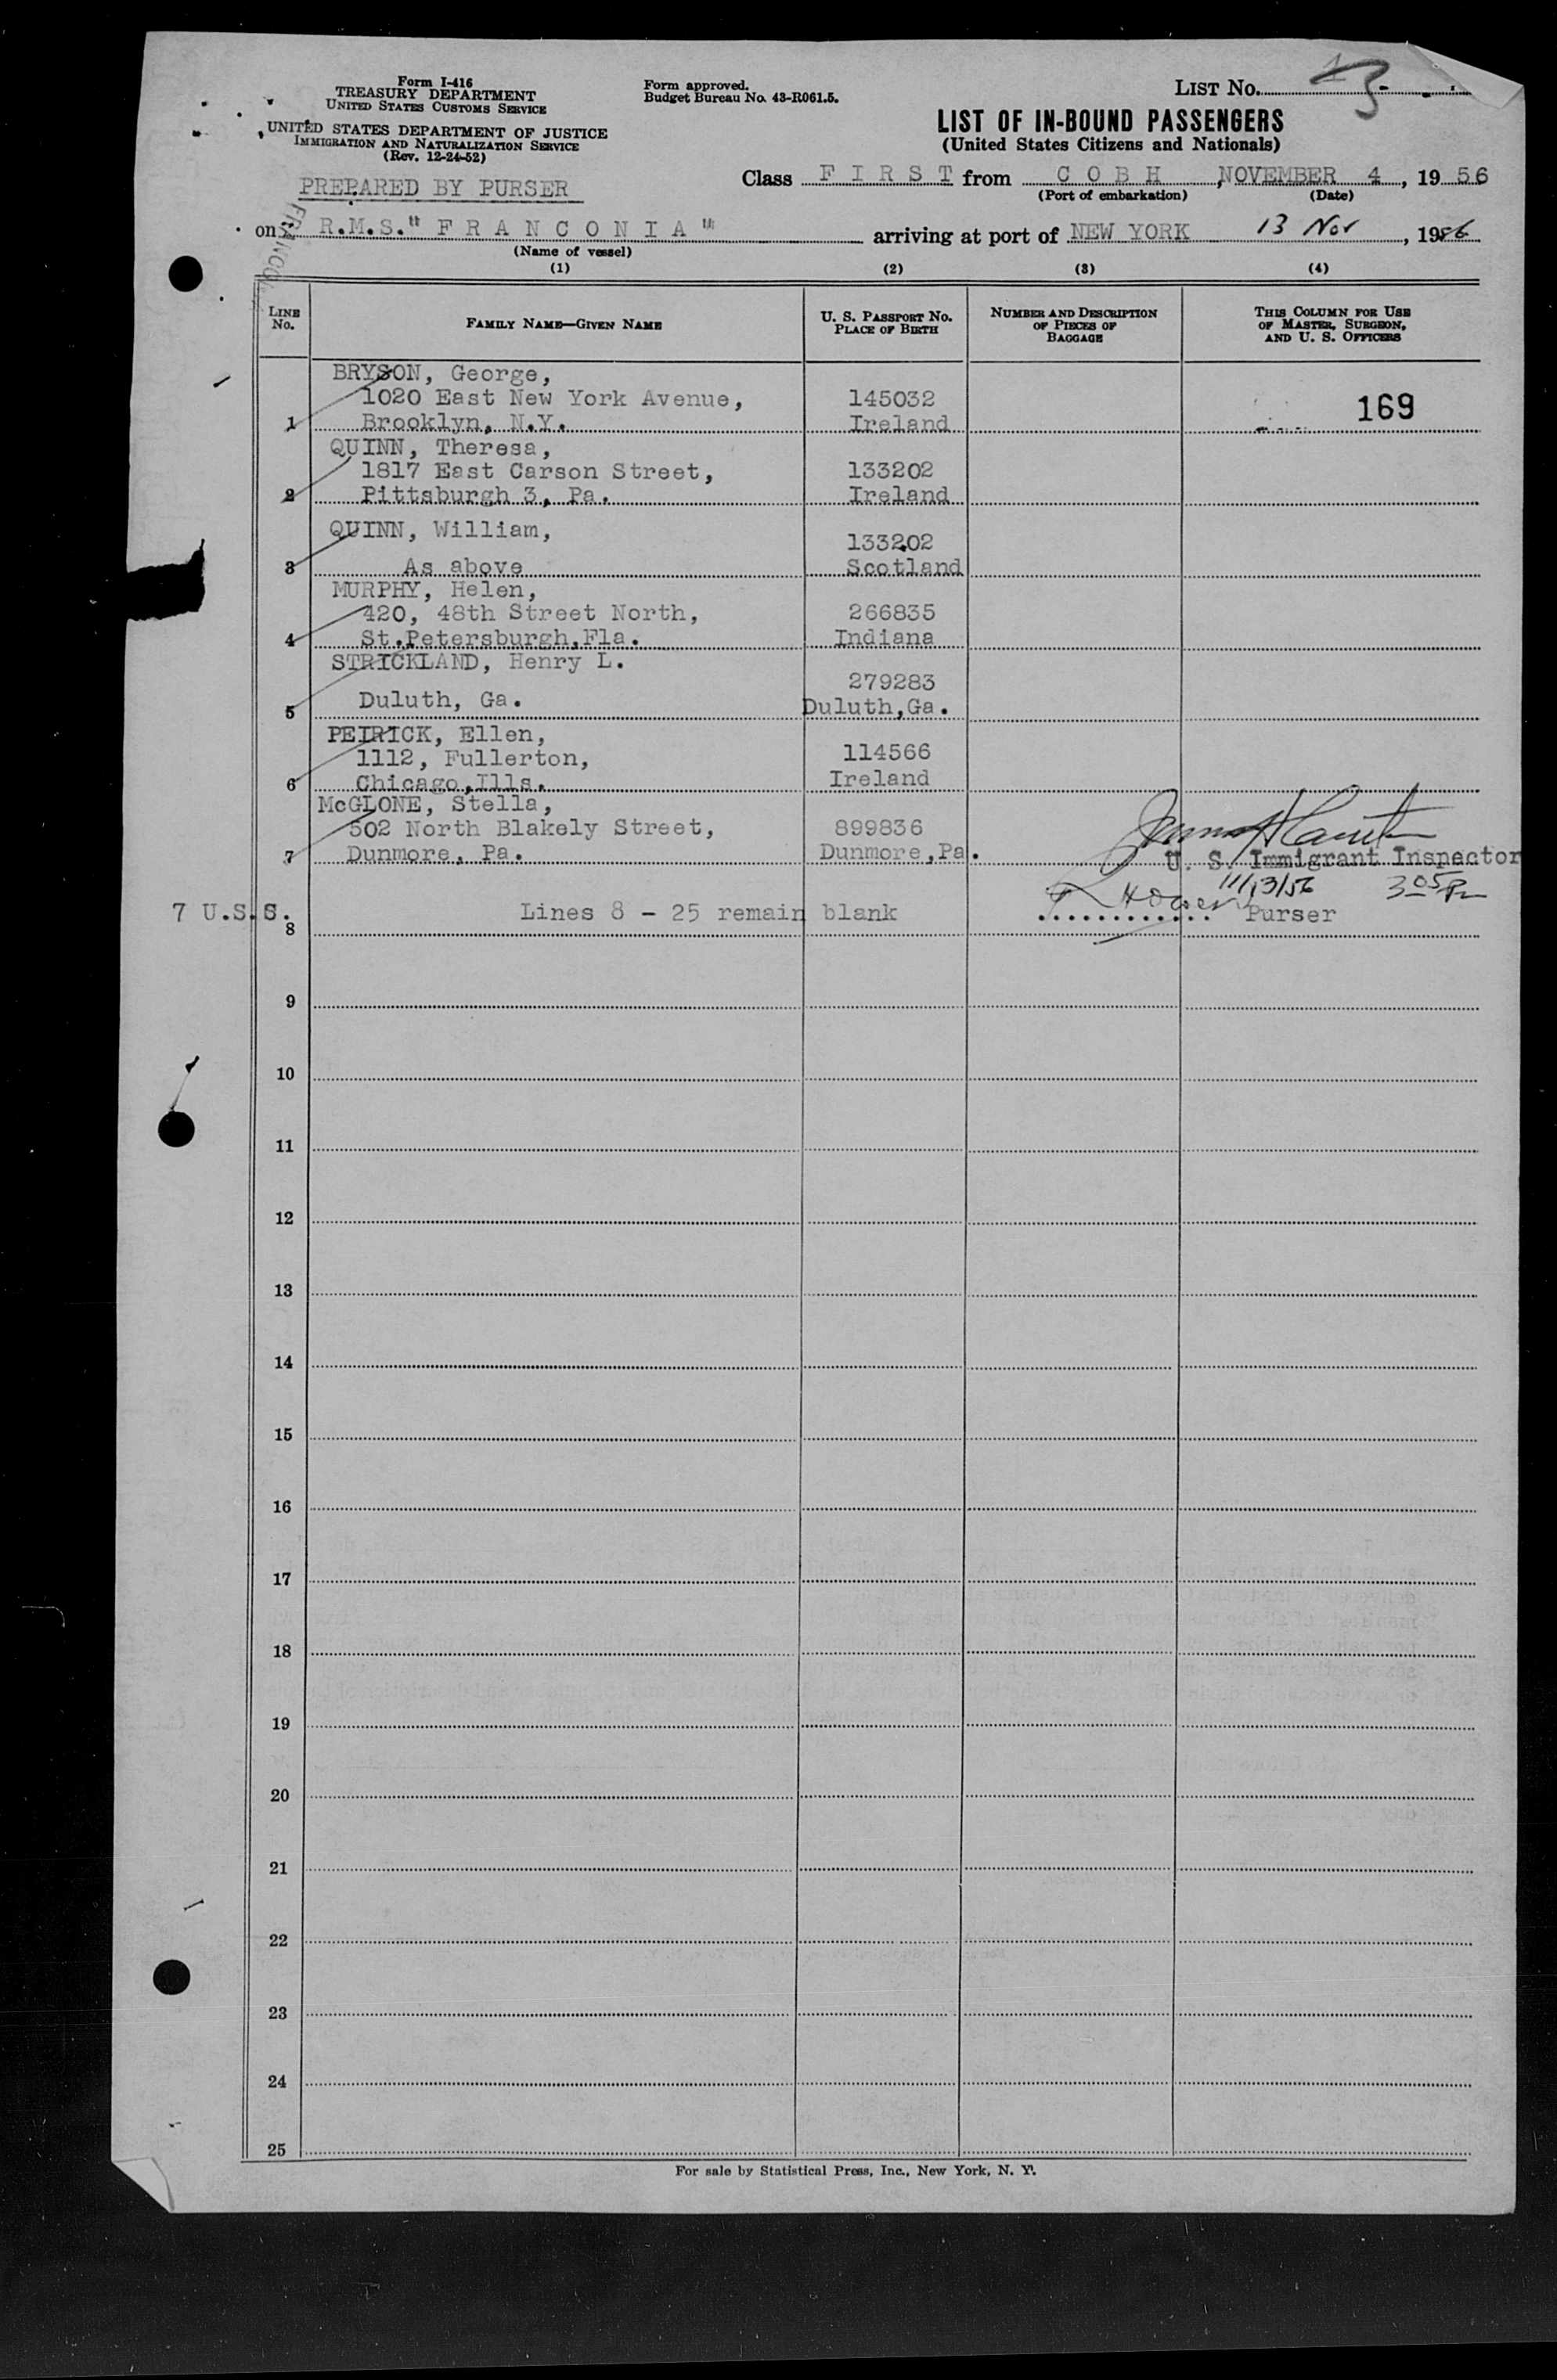 Form I-416
TREASURY DEPARTMENT
UNITED STATES CUSTOMS SERVICE
UNITED STATES DEPARTMENT OF JUSTICE
IMMIGRATION AND NATURALIZATION SERVICE
(Rev. 12-24-52)
PREPARED BY PURSER
Form approved.
Budget Bureau No. 43-R061.5.
LIST No. 3
LIST OF IN-BOUND PASSENGERS
(United States Citizens and Nationals)
Class F I R S T from C O B H, NOVEMBER 4, 1956
(Port of embarkation) (Date)
on R.M.S. "F R A N C O N I A" arriving at port of NEW YORK 13 Nov, 1956
(Name of vessel)
(1) (2) (3) (4)
LINE No. FAMILY NAME—GIVEN NAME U. S. PASSPORT NO. PLACE OF BIRTH NUMBER AND DESCRIPTION OF PIECES OF BAGGAGE THIS COLUMN FOR USE OF MASTER, SURGEON, AND U. S. OFFICERS
BRYSON, George,
1020 East New York Avenue, 145032 169
1 Brooklyn, N.Y. Ireland
QUINN, Theresa,
1817 East Carson Street, 133202
2 Pittsburgh 3, Pa. Ireland
QUINN, William, 133202
3 As above Scotland
MURPHY, Helen,
420, 48th Street North, 266835
4 St.Petersburgh,Fla. Indiana
STRICKLAND, Henry L. 279283
5 Duluth, Ga. Duluth,Ga.
PEIRICK, Ellen,
1112, Fullerton, 114566
6 Chicago,Ills. Ireland
McGLONE, Stella,
502 North Blakely Street, 899836
7 Dunmore, Pa. Dunmore,Pa.
U. S. Immigrant Inspector
11/13/56 3 05 Pm
7 U.S.S. 8 Lines 8 - 25 remain blank ............ Purser
9
10
11
12
13
14
15
16
17
18
19
20
21
22
23
24
25
For sale by Statistical Press, Inc., New York, N. Y.